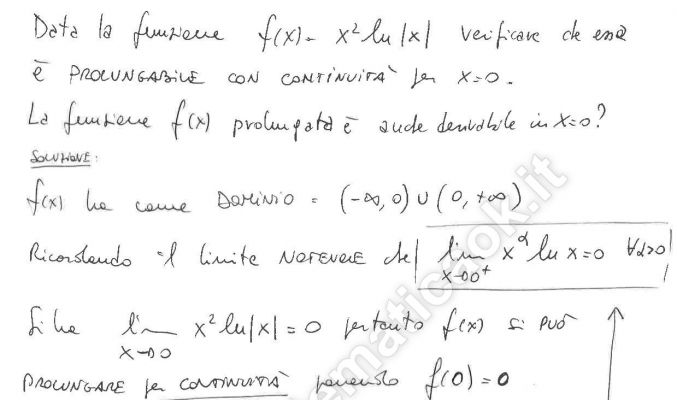 Data la funzione f(x) = x² ln|x| verificare che essa
è PROLUNGABILE CON CONTINUITÀ per x=0.
La funzione f(x) prolungata è anche derivabile in x=0?
SOLUZIONE:
f(x) ha come DOMINIO = (-∞, 0) ∪ (0, +∞)
Ricordando il limite NOTEVOLE che lim x→0⁺ x^α ln x = 0 ∀α>0
Si ha lim x→0 x² ln|x| = 0 pertanto f(x) si PUÒ
PROLUNGARE per CONTINUITÀ ponendo f(0) = 0
ematicaok.it